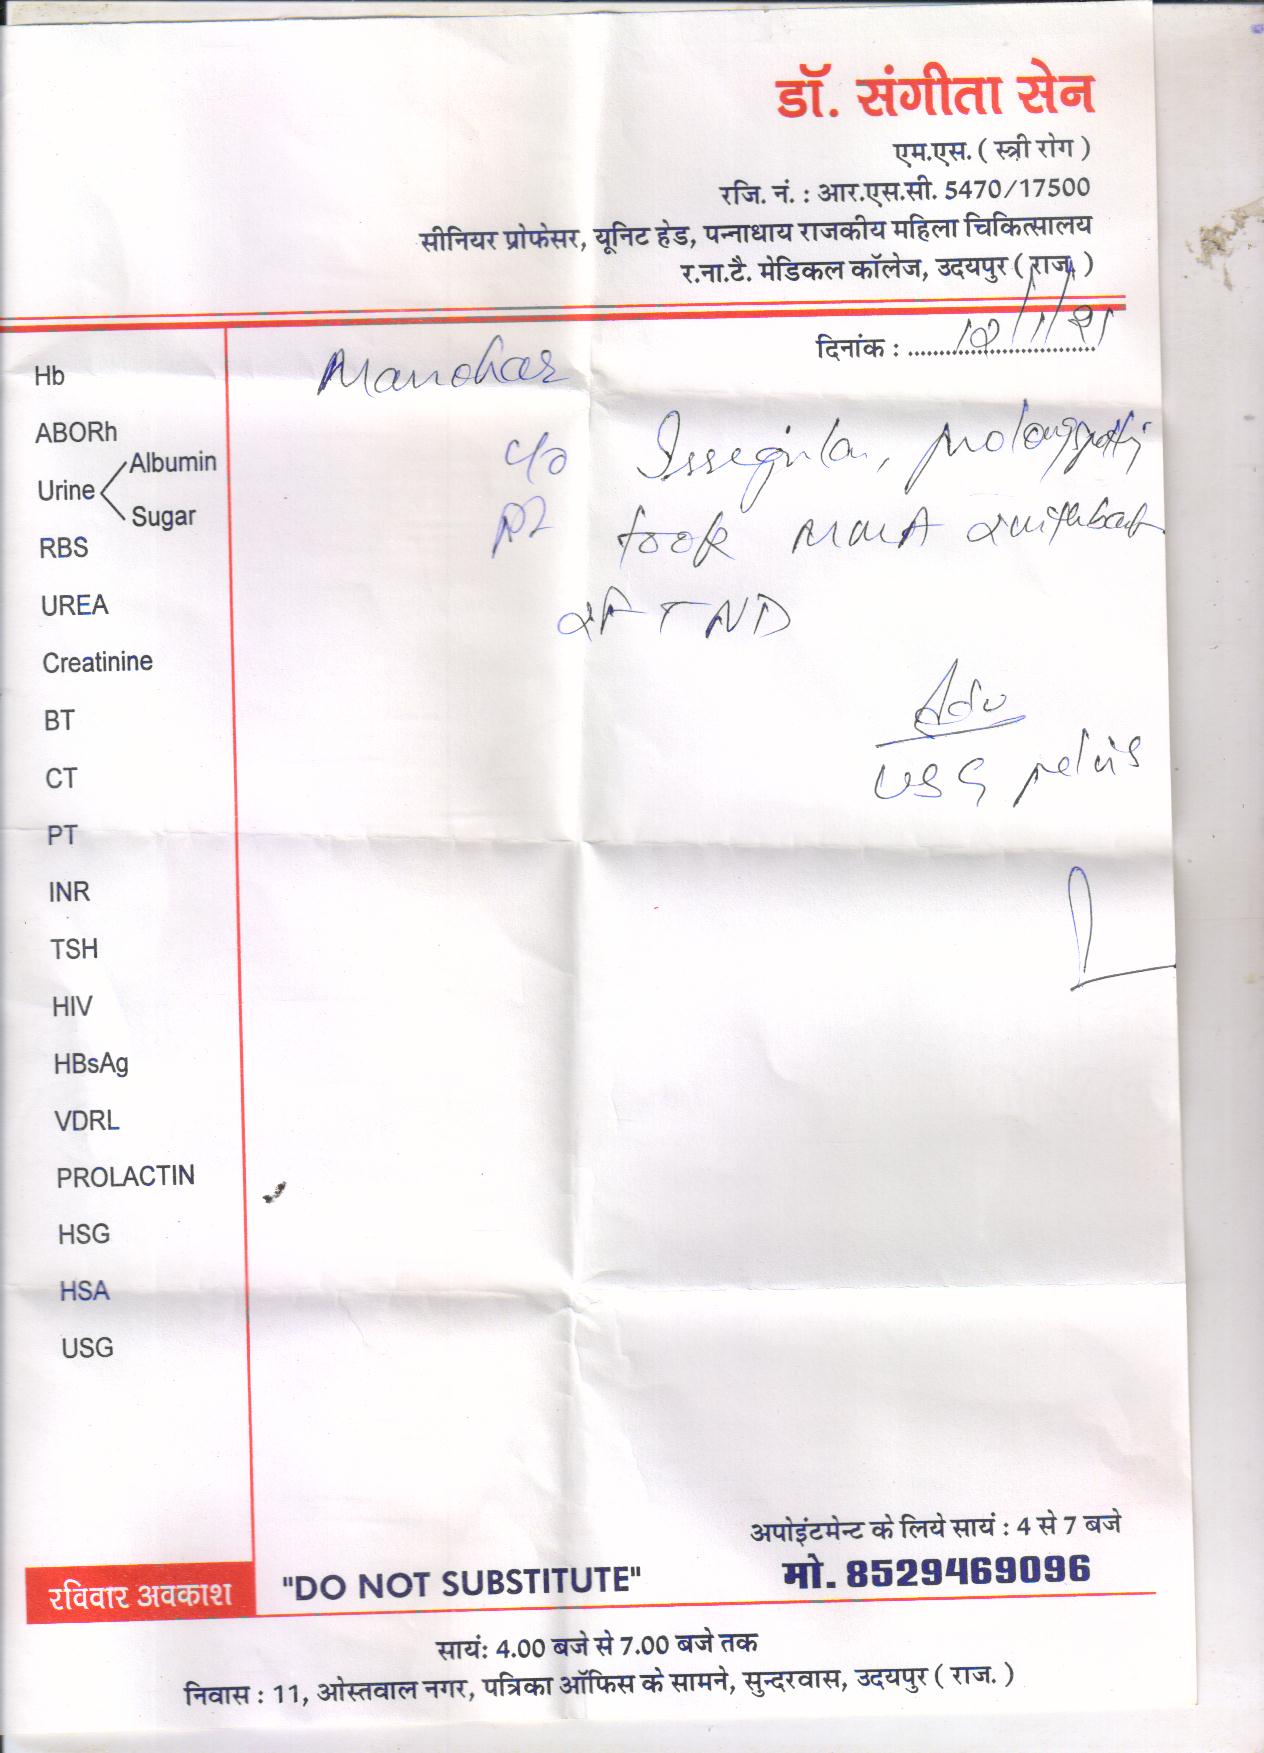 डॉ. संगीता सेन
एम.एस. ( स्त्री रोग )
रजि. नं. : आर.एस.सी. 5470/17500
सीनियर प्रोफेसर, यूनिट हेड, पन्नाधाय राजकीय महिला चिकित्सालय
र.ना.टै. मेडिकल कॉलेज, उदयपुर ( राज. )
दिनांक :
Manohar
c/o Irregular,
took MMA
FTND
Adv
USG pelvis
Hb
ABORh
Urine Albumin
Sugar
RBS
UREA
Creatinine
BT
CT
PT
INR
TSH
HIV
HBsAg
VDRL
PROLACTIN
HSG
HSA
USG
अपोइंटमेन्ट के लिये सायं : 4 से 7 बजे
मो. 8529469096
रविवार अवकाश
"DO NOT SUBSTITUTE"
सायं: 4.00 बजे से 7.00 बजे तक
निवास : 11, ओस्तवाल नगर, पत्रिका ऑफिस के सामने, सुन्दरवास, उदयपुर ( राज. )